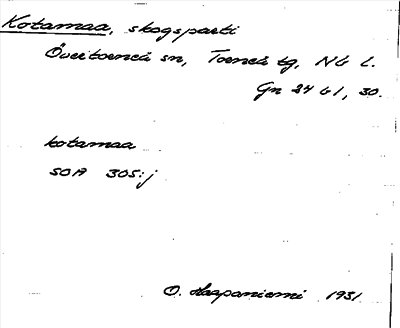 Kotamaa, skogsparti
Övertorneå sn, Torneå tg, NB L.
Gn 24 61, 30.
kotamaa
SOA 305:j
O. Haapaniemi 1931